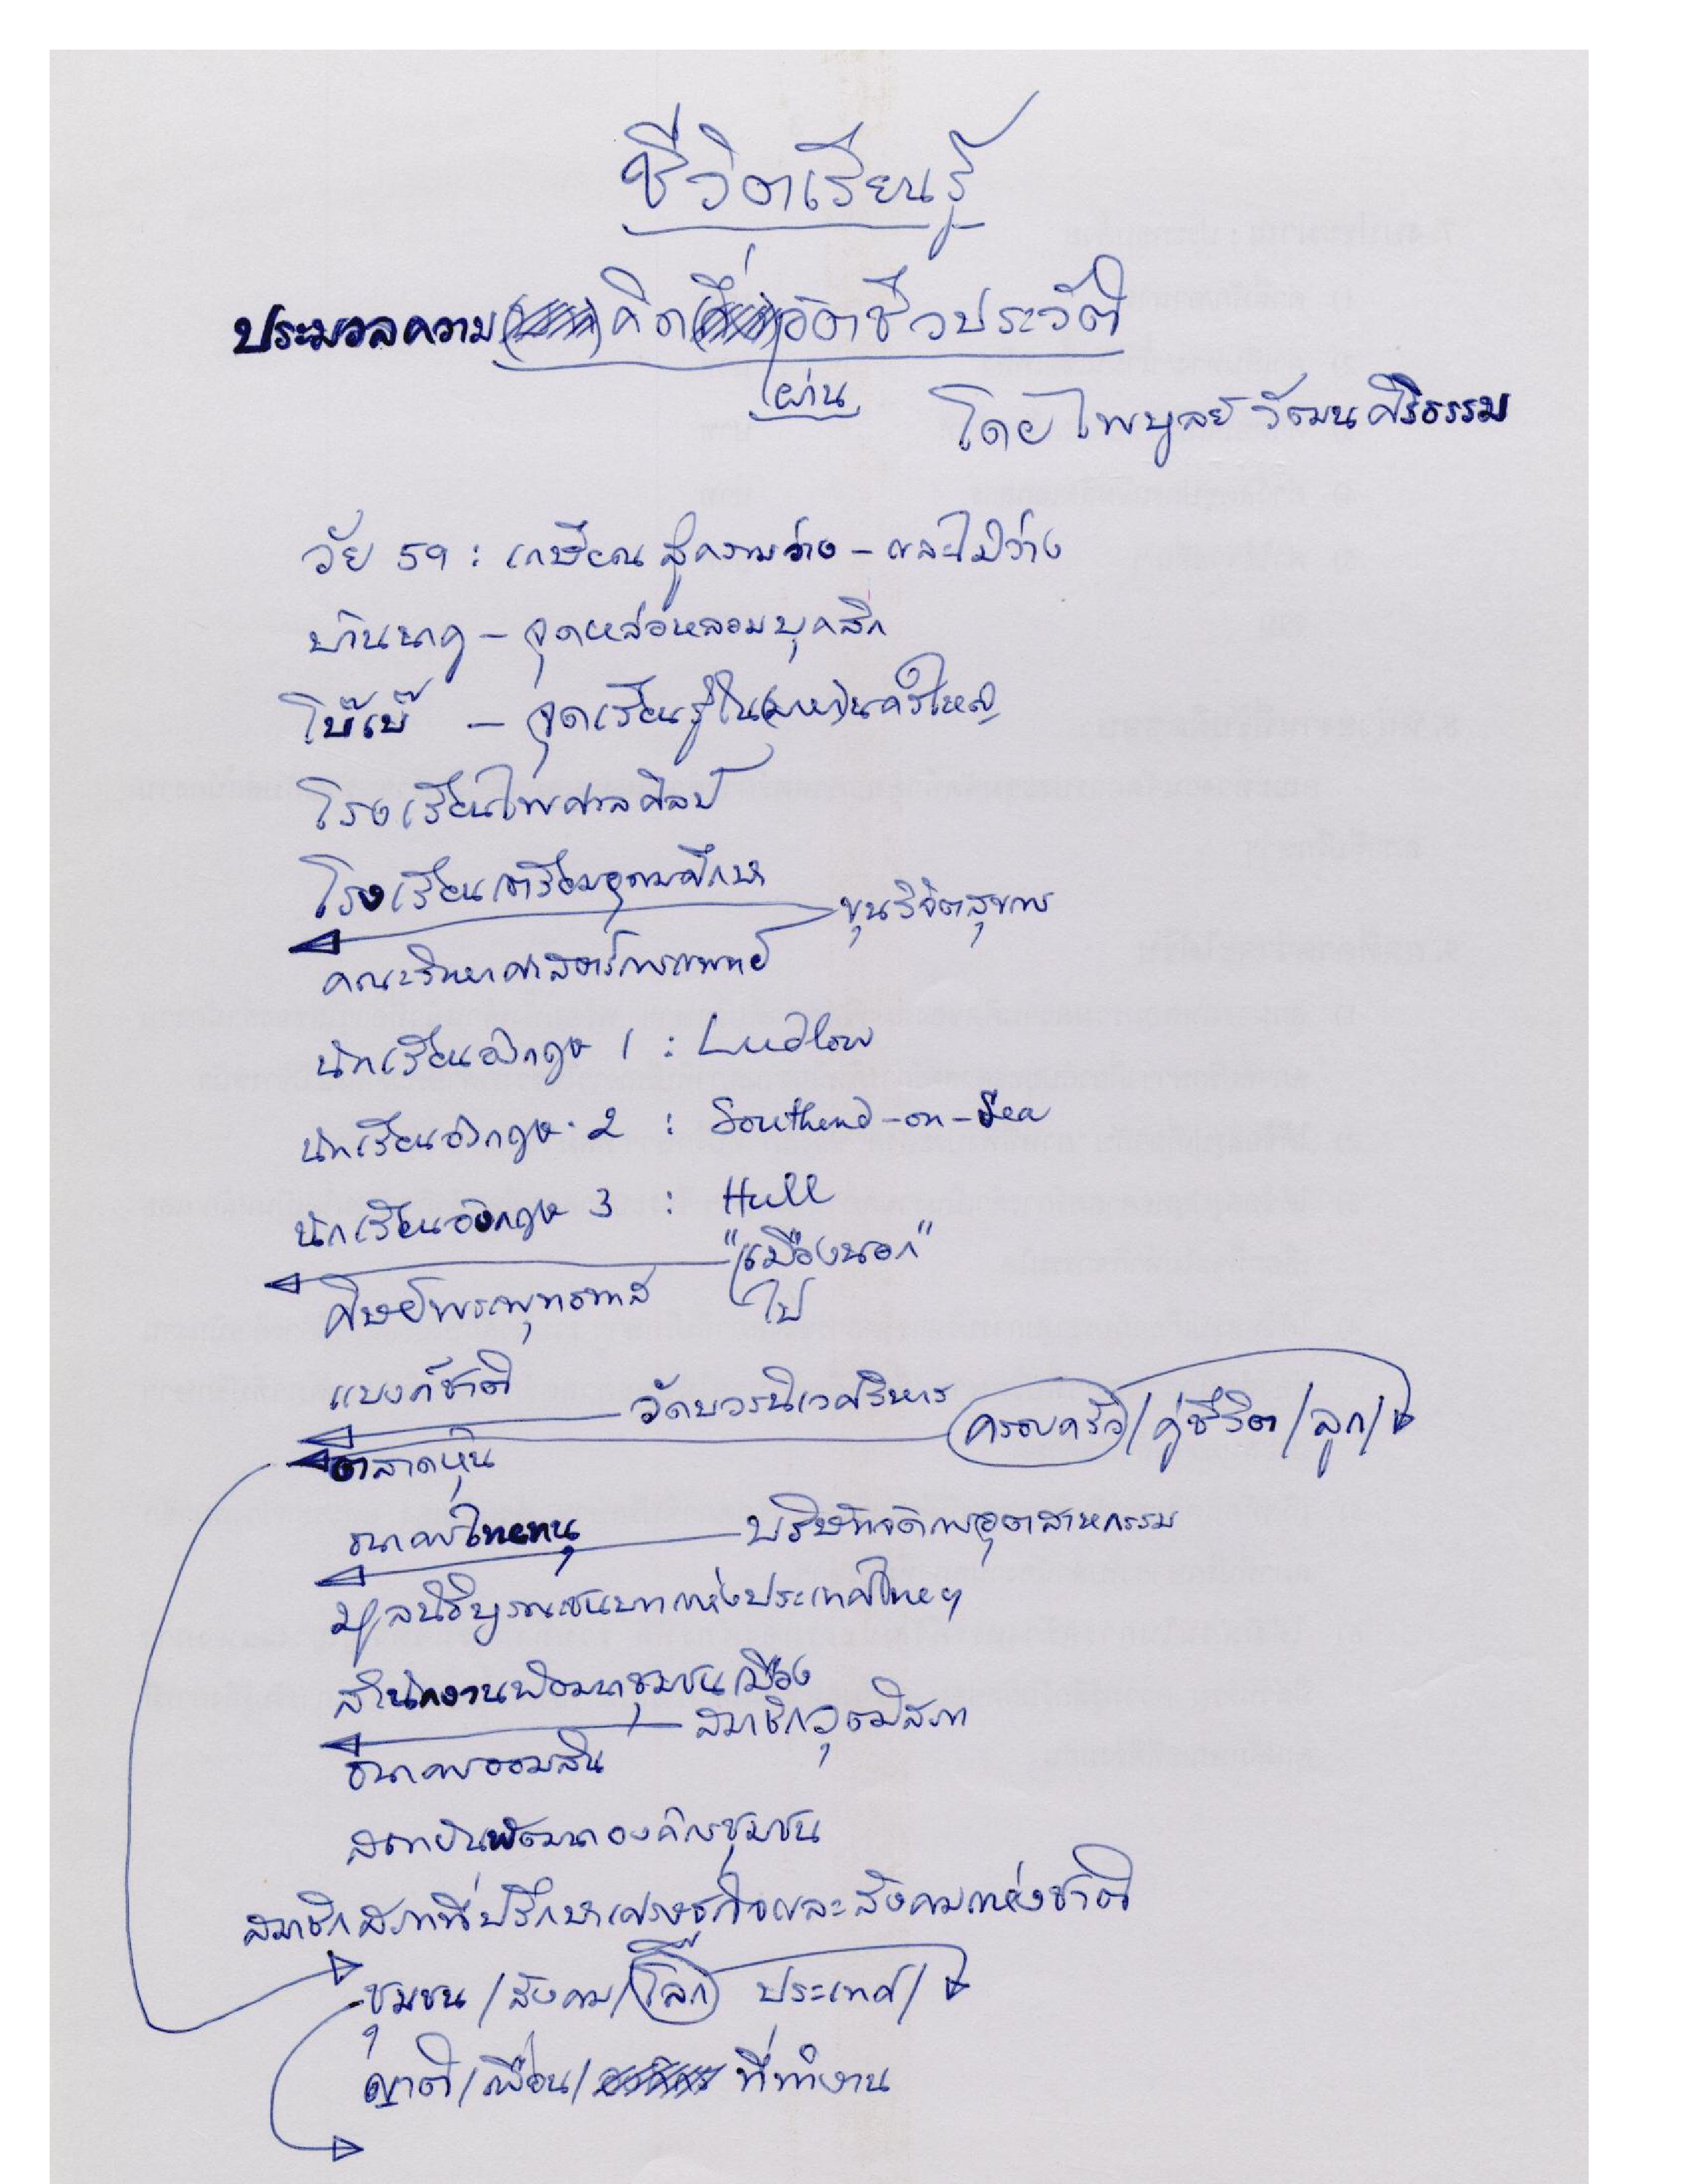 ชีวิตเรียนรู้
ประมวลความคิดอัตชีวประวัติ
ผ่าน
โดย ไพบูลย์ วัฒนศิริธรรม
วัย 59 : เกษียณสู่ความว่าง – และไม่ว่าง
บ้านนาคู – จุดหล่อหลอมบุคลิก
โบ๊เบ๊ – จุดเรียนรู้ใน(มหา)นครใหญ่
โรงเรียนไพศาลศิลป์
โรงเรียนเตรียมอุดมศึกษา
ขุนวิจิตสุขการ
คณะวิทยาศาสตร์การแพทย์
นักเรียนอังกฤษ 1 : Ludlow
นักเรียนอังกฤษ 2 : Southend-on-Sea
นักเรียนอังกฤษ 3 : Hull
"เมืองนอก"
ไป
ศิษย์พระพุทธทาส
แบงก์ชาติ
วัดบวรนิเวศวิหาร
ครอบครัว/คู่ชีวิต/ลูก/
ตลาดหุ้น
ธนาคารไทยทนุ
บริษัทจัดการอุตสาหกรรม
มูลนิธิบูรณะชนบทแห่งประเทศไทยฯ
สำนักงานพัฒนาชุมชนเมือง
สมาชิกวุฒิสภา
ธนาคารออมสิน
สถาบันพัฒนาองค์กรชุมชน
สมาชิกสภาที่ปรึกษาเศรษฐกิจและสังคมแห่งชาติ
ชุมชน/สังคม/โลก ประเทศ/
ญาติ/เพื่อน/ ที่ทำงาน